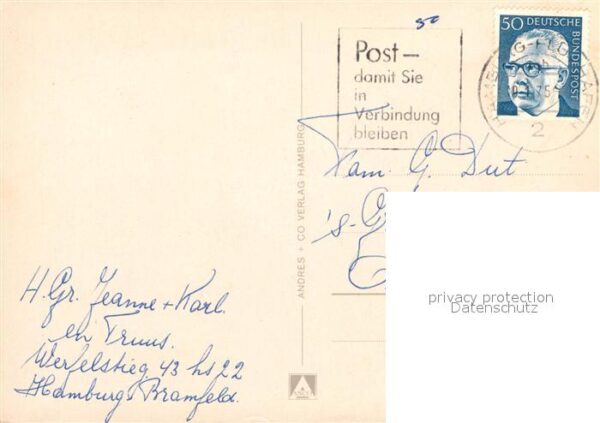 50
Post –
damit Sie
in
Verbindung
bleiben
50 DEUTSCHE
BUNDESPOST
HAMBURG-FLUGHAFEN
2
Fam. G. Dut
's-Gr
ANDRES + CO VERLAG HAMBURG
H. Gr. Jeanne + Karl.
en Truus.
Werfelstieg 43 hs 22
Hamburg Bramfeld.
privacy protection
Datenschutz